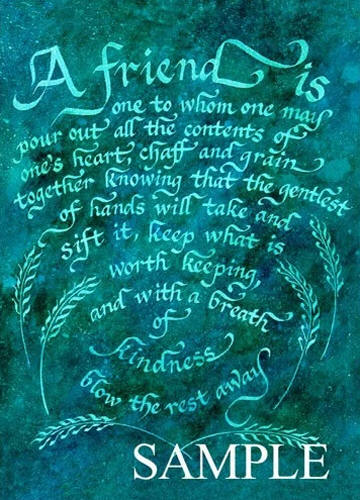 A friend is
one to whom one may
pour out all the contents of
one's heart, chaff and grain
together knowing that the gentlest
of hands will take and
sift it, keep what is
worth keeping,
and with a breath
of
kindness
blow the rest away
SAMPLE